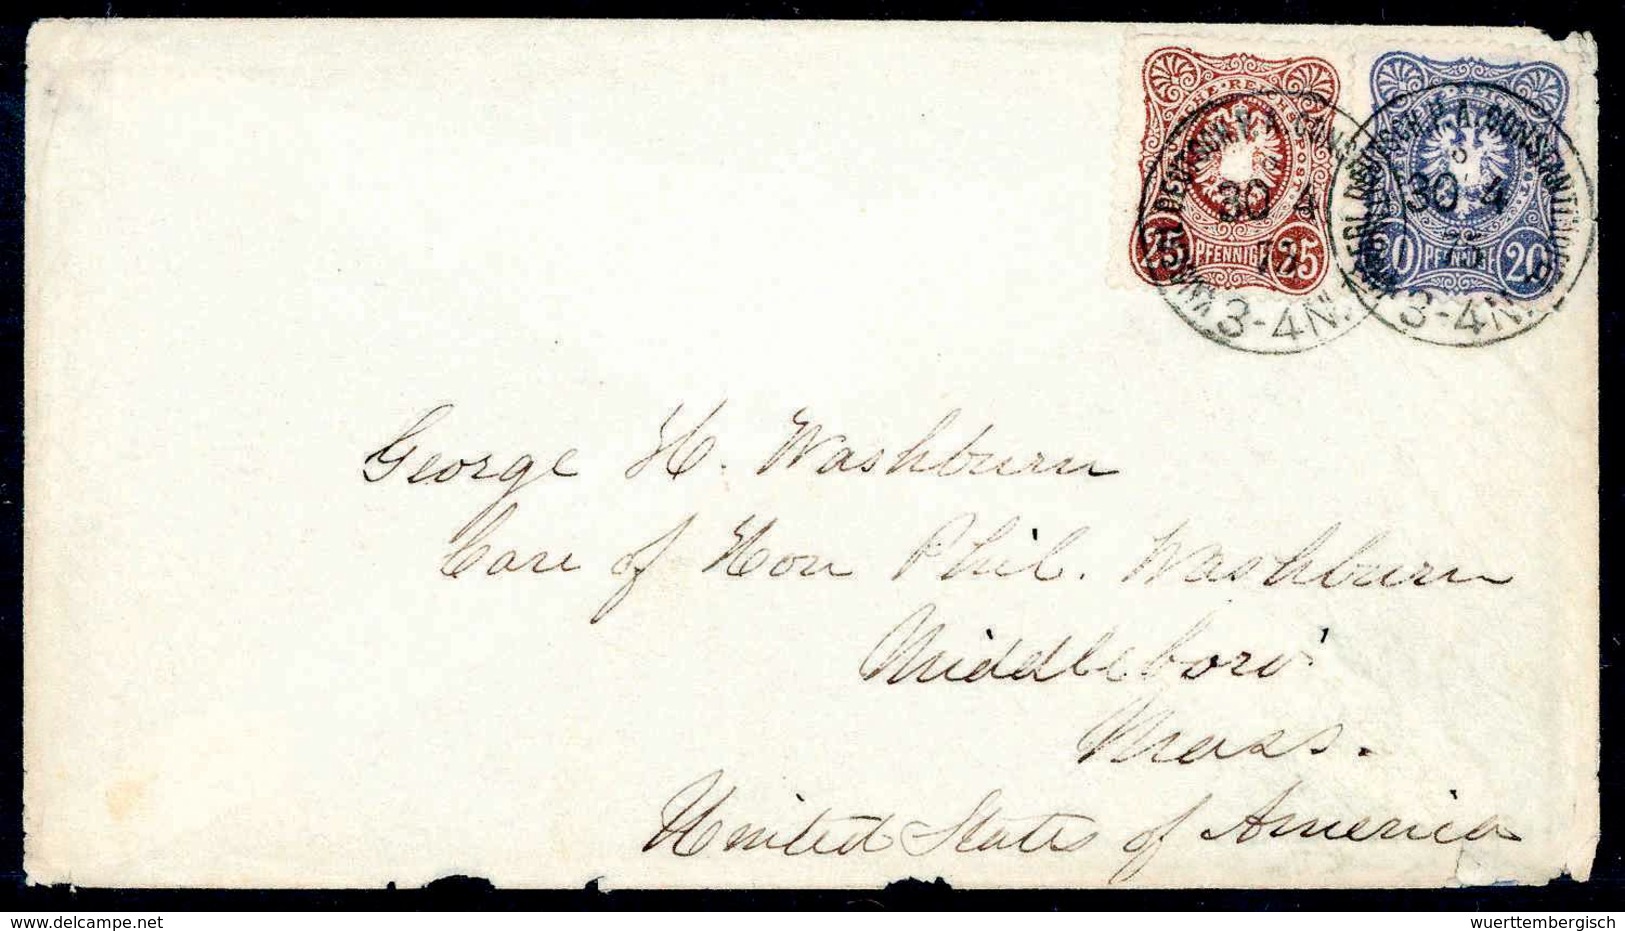 DEUTSCHE REICHS POST
25 PFENNIG 25
20 PFENNIGE 20
KAISERL. DEUTSCH. P. A. CONSTANTINOPEL
30 4
3-4N.
30 4
3-4N.
George H. Washburn
Care of Hon Phil. Washburn
Middleboro'
Mass.
United States of America
www.delcampe.net
wuerttembergisch